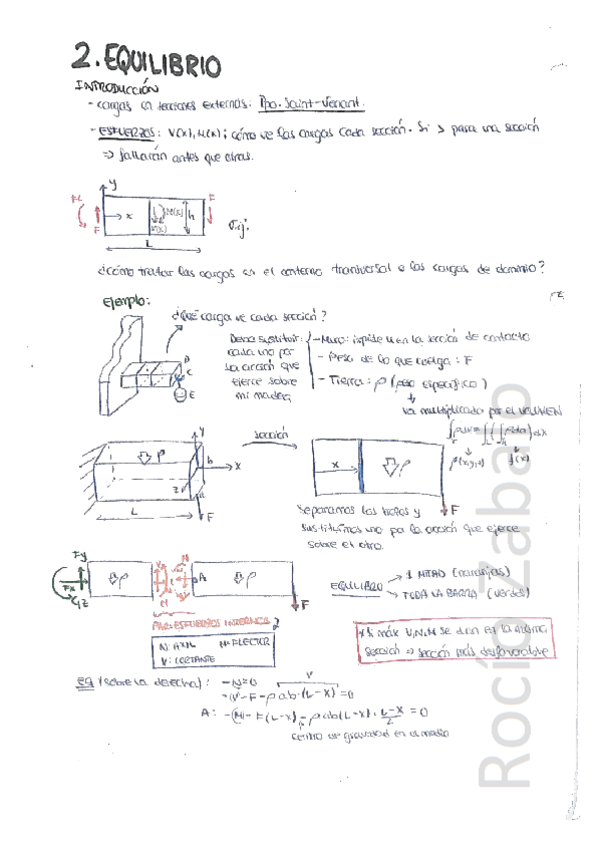 2. EQUILIBRIO
INTRODUCCIÓN
- cargas en secciones externas. Ppo. Saint-Venant.
- ESFUERZOS: V(x), M(x); cómo ve las cargas cada sección. Si > para una sección
⇒ fallarán antes que otras.
y
F
F
x
M(x)
V(x)
h
L
σij.
¿Cómo tratar las cargas en el contorno transversal o las cargas de dominio?
Ejemplo:
¿Qué carga ve cada sección?
D
C
E
Debo sustituir:
cada uno por
la acción que
ejerce sobre
mi madera
- Muro: impide u en la sección de contacto
- Peso de lo que cuelga: F
- Tierra: ρ (peso específico)
va multiplicado por el VOLUMEN
ρ(x,y,z)
f(x)
y
ρ
b
x
z
a
L
F
sección
x
ρ
F
Separamos los trozos y
sustituimos uno por la acción que ejerce
sobre el otro.
Fy
Fx
ρ
A
ρ
F
EQUILIBRIO
1 MITAD (naranjas)
TODA LA BARRA (verdes)
ESFUERZOS INTERNOS
N: AXIL
M: FLECTOR
V: CORTANTE
* Si máx V, N, M se dan en la misma
sección ⇒ sección más desfavorable
EQ (sobre la derecha):
- N = 0
V
- V - F - ρab·(L-x) = 0
A: - M - F(L-x) - ρab(L-x) · L-x/2 = 0
centro de gravedad en el medio
Rocío Zabaro